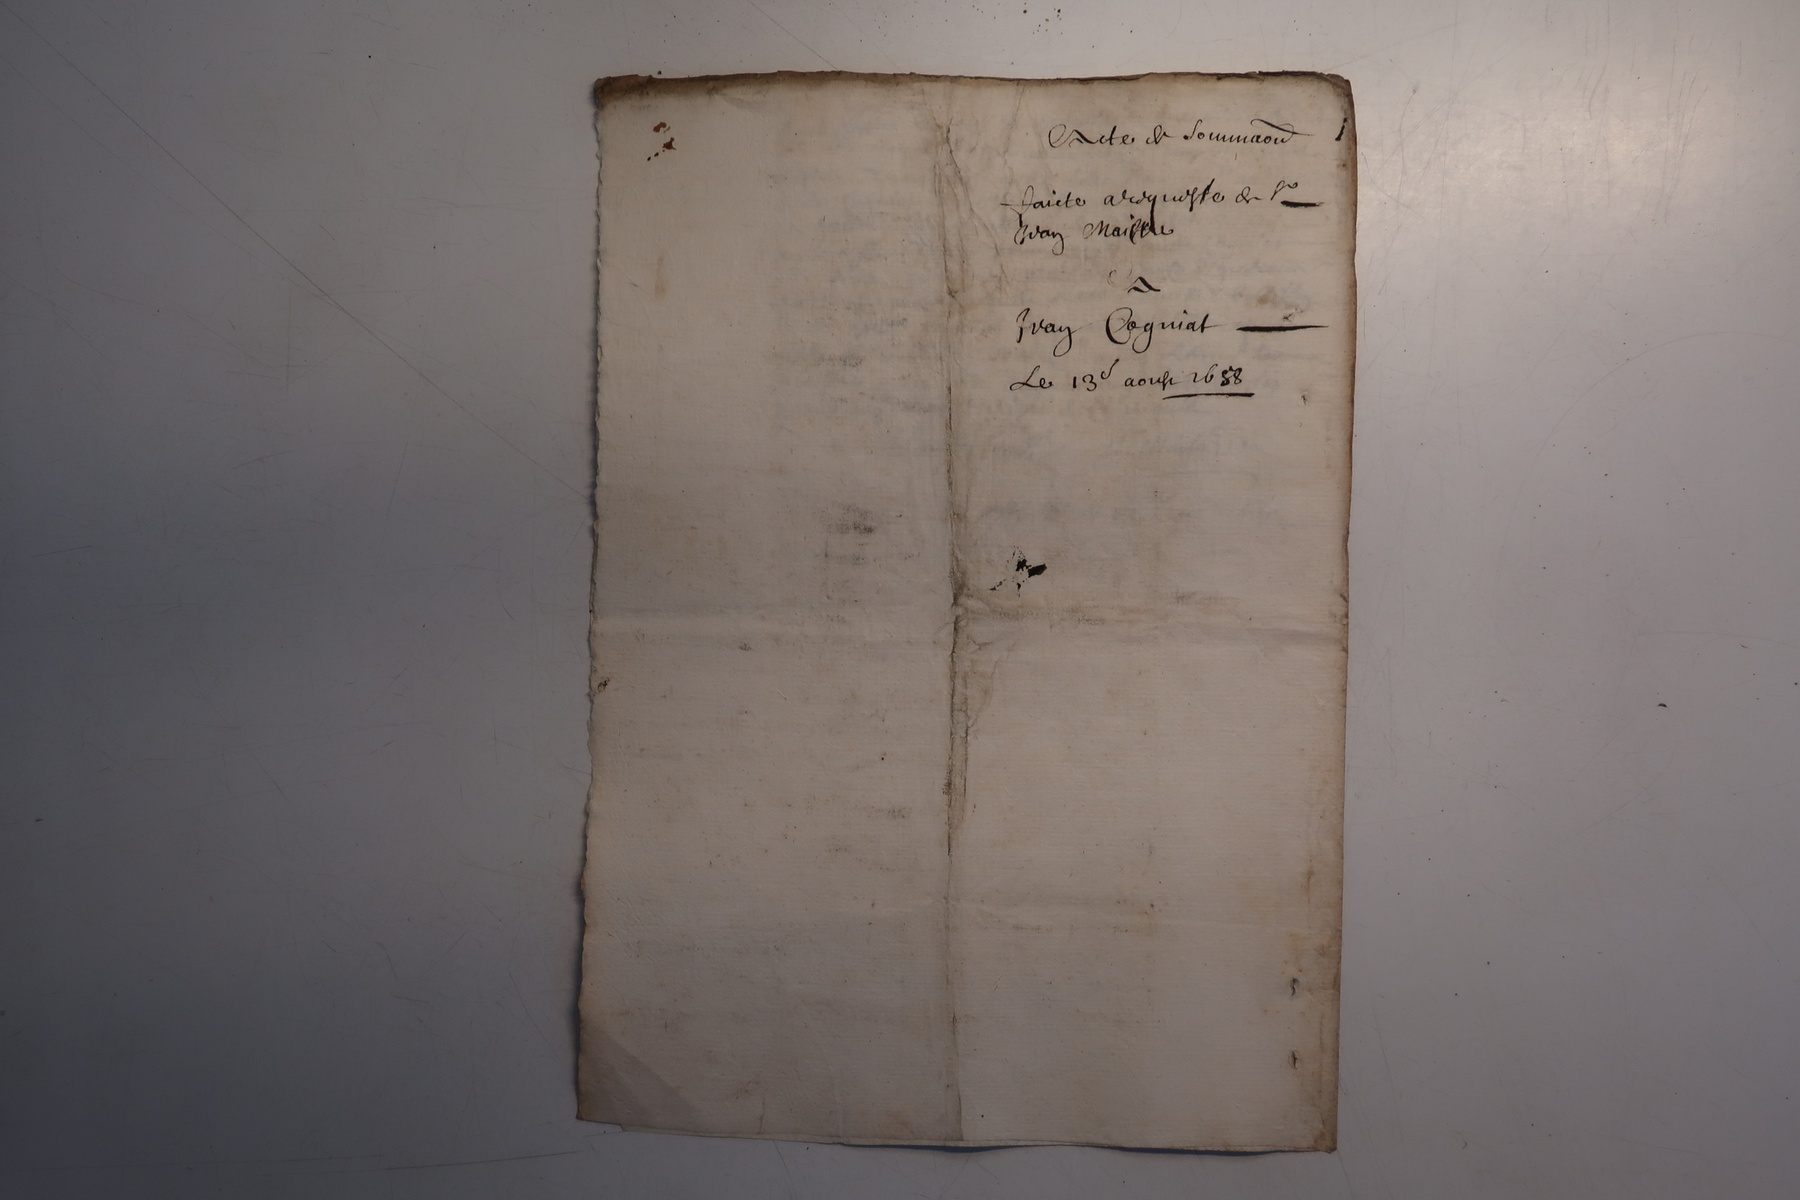 Acte de Sommaon
faicte a requeste de Sr
Jean Maistre
A
Jean Cogniat
Le 13e aoust 1658